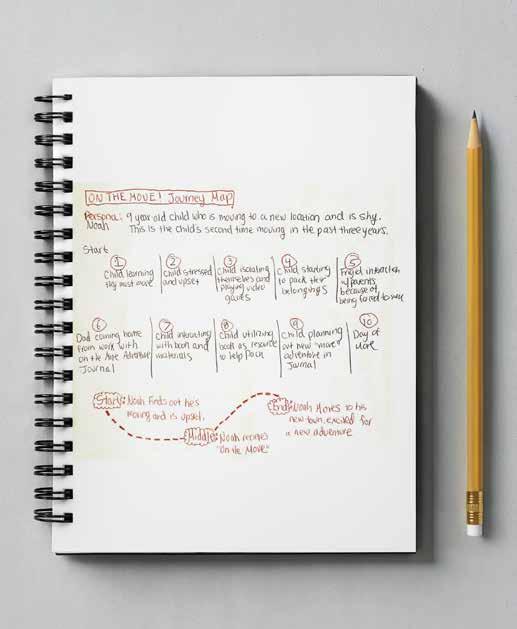 ON THE MOVE! Journey Map
Persona: 9 year old child who is moving to a new location and is shy.
Noah This is the child's second time moving in the past three years.
Start
1
Child learning
they must move
2
Child stressed
and upset
3
Child isolating
themselves and
playing video
games
4
Child starting
to pack their
belongings
5
interaction
w/ parents
because of
being forced to move
6
Dad coming home
from work with
On the Move Adventure
Journal
7
Child interacting
with book and
materials
8
Child utilizing
book as resource
to help pack
9
Child planning
out new "move"
adventure in
Journal
10
Day of
Move
Start: Noah finds out he's
moving and is upset.
Middle: Noah receives
"On the Move"
End: Noah Moves to his
new town, excited for
a new adventure